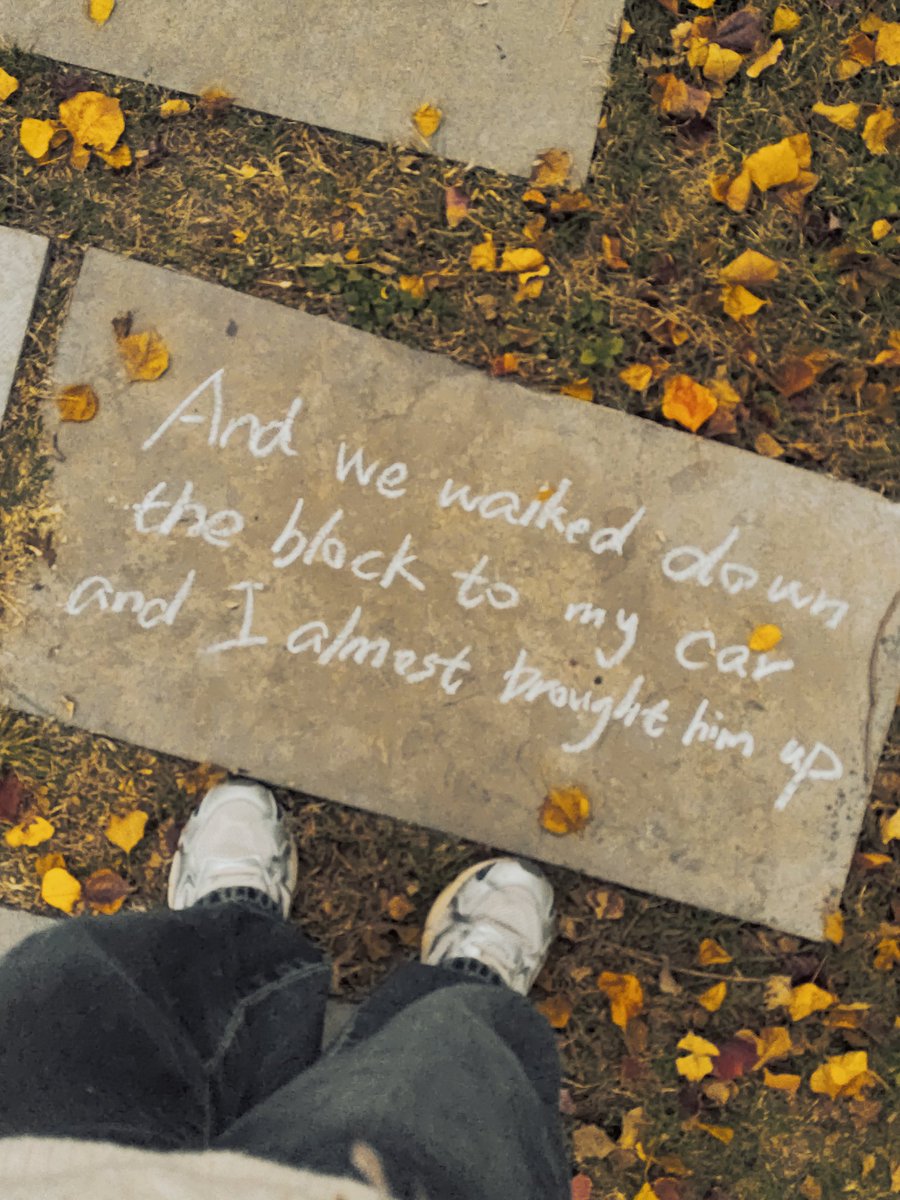 And we walked down
the block to my car
and I almost brought him up